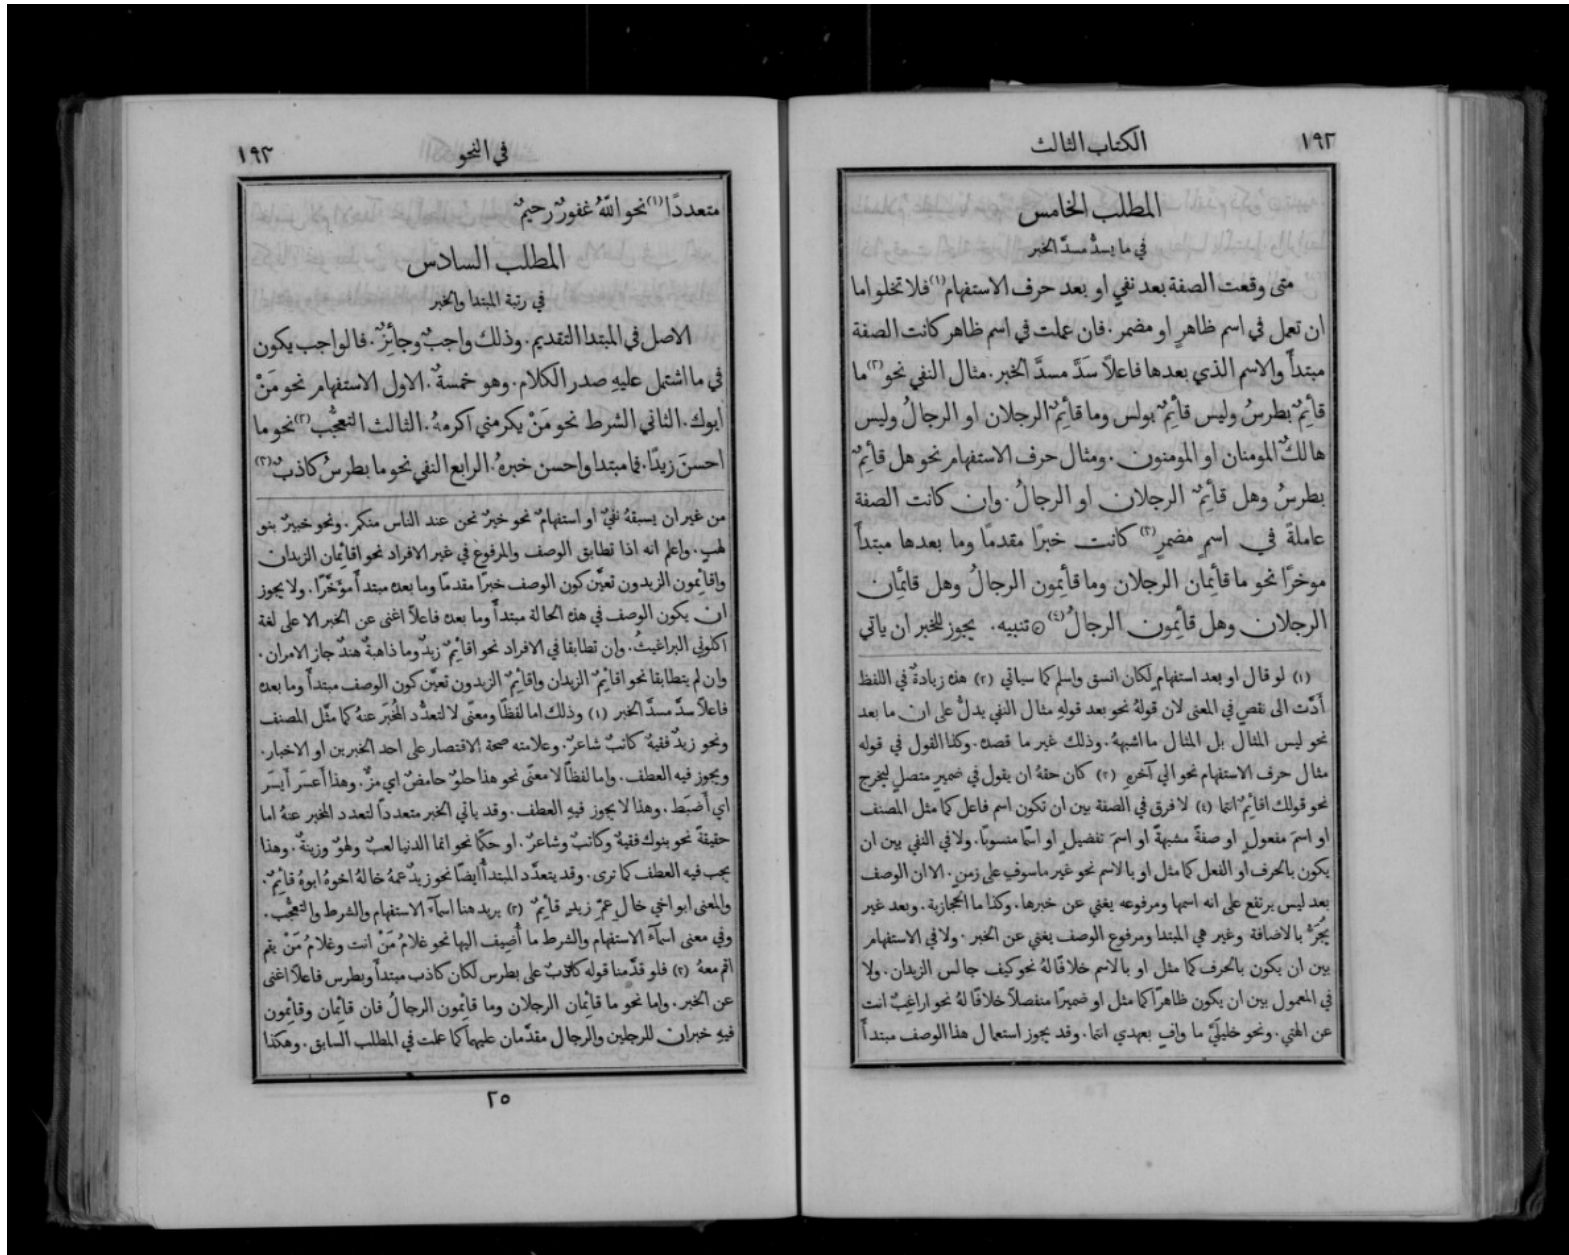 ١٩٢
الكتاب الثالث
المطلب الخامس
في ما يسدُّ مسدَّ الخبر
متى وقعت الصفة بعد نفيٍ او بعد حرف الاستفهام (١) فلا تخلو اما
ان تعمل في اسم ظاهرٍ او مضمر. فان عملت في اسم ظاهر كانت الصفة
مبتدأً والاسم الذي بعدها فاعلاً سَدَّ مسدَّ الخبر. مثال النفي نحو (٢) ما
قائِمٌ بطرسُ وليس قائِمٌ بولس وما قائِمٌ الرجلان او الرجالُ وليس
هالكٌ المومنان او المومنون. ومثال حرف الاستفهام نحو هل قائِمٌ
بطرسُ وهل قائِمٌ الرجلان او الرجالُ. وان كانت الصفة
عاملةً في اسمٍ مضمرٍ (٣) كانت خبرًا مقدمًا وما بعدها مبتدأً
موخرًا نحو ما قائِمان الرجلان وما قائِمون الرجالُ وهل قائِمان
الرجلان وهل قائِمون الرجالُ (٤) ۞ تنبيه. يجوز للخبر ان ياتي
(١) لو قال او بعد استفهامٍ لكان انسق واسلم كما سياتي (٢) هذه زيادةٌ في اللفظ
أَدَّت الى نقصٍ في المعنى لان قولهُ نحو بعد قولهِ مثال النفي يدلُّ على ان ما بعد
نحو ليس المثال بل المثال ما اشبههُ. وذلك غير ما قصده. وكذا القول في قوله
مثال حرف الاستفهام نحو الي آخرهِ (٣) كان حقهُ ان يقول في ضميرٍ متصلٍ ليخرج
نحو قولك اقائِمٌ انتما (٤) لا فرق في الصفة بين ان تكون اسم فاعل كما مثل المصنف
او اسمَ مفعولٍ او صفةً مشبهةً او اسمَ تفضيلٍ او اسمًا منسوبًا. ولا في النفي بين ان
يكون بالحرف او الفعل كما مثل او بالاسم نحو غير ماسوفٍ على زمنٍ. الا ان الوصف
بعد ليس يرتفع على انه اسمها ومرفوعه يغني عن خبرها. وكذا ما الحجازية. وبعد غير
يُجَرُّ بالاضافة وغير هي المبتدا ومرفوع الوصف يغني عن الخبر. ولا في الاستفهام
بين ان يكون بالحرف كما مثل او بالاسم خلافًا لهُ نحو كيف جالس الزيدان. ولا
في المعمول بين ان يكون ظاهرًا كما مثل او ضميرًا منفصلاً خلافًا لهُ نحو اراغبٌ انت
عن الهتي. ونحو خليليَّ ما وافٍ بعهدي انتما. وقد يجوز استعمال هذا الوصف مبتدأً
في النحو
١٩٣
متعددًا (١) نحو اللّهُ غفورٌ رحيمٌ
المطلب السادس
في رتبة المبتدا والخبر
الاصل في المبتدا التقديم. وذلك واجبٌ وجائِزٌ. فالواجب يكون
في ما اشتمل عليهِ صدر الكلام. وهو خمسةٌ. الاول الاستفهام نحو مَنْ
ابوك. الثاني الشرط نحو مَنْ يكرمني اكرمهُ. الثالث التعجُّب (٢) نحو ما
احسنَ زيدًا. فما مبتدا واحسن خبرهُ. الرابع النفي نحو ما بطرسُ كاذبٌ (٣)
من غير ان يسبقهُ نفيٌ او استفهامٌ نحو خيرٌ نحن عند الناس منكم. ونحو خبيرٌ بنو
لهبٍ. واعلم انه اذا تطابق الوصف والمرفوع في غير الافراد نحو اقائِمان الزيدان
واقائِمون الزيدون تعيَّن كون الوصف خبرًا مقدمًا وما بعده مبتدأً مؤَخَّرًا. ولا يجوز
ان يكون الوصف في هذه الحالة مبتدأً وما بعده فاعلاً اغنى عن الخبر الا على لغة
اكلوني البراغيثُ. وإن تطابقا في الافراد نحو اقائِمٌ زيدٌ وما ذاهبةٌ هندٌ جاز الامران.
وان لم يتطابقا نحو اقائِمٌ الزيدان واقائِمٌ الزيدون تعيَّن كون الوصف مبتدأً وما بعده
فاعلاً سدَّ مسدَّ الخبر (١) وذلك اما لفظًا ومعنًى لا لتعدُّد المُخبَر عنهُ كما مثَّل المصنف
ونحو زيدٌ فقيهٌ كاتبٌ شاعرٌ. وعلامته صحة الاقتصار على احد الخبرين او الاخبار.
ويجوز فيه العطف. واما لفظًا لا معنًى نحو هذا حلوٌ حامضٌ اي مزٌّ. وهذا أَعسَر أَيسَر
اي أَضبَط. وهذا لا يجوز فيهِ العطف. وقد ياتي الخبر متعددًا لتعدد المخبر عنهُ اما
حقيقةً نحو بنوك فقيهٌ وكاتبٌ وشاعرٌ. او حكمًا نحو انما الدنيا لعبٌ ولهوٌ وزينةٌ. وهذا
يجب فيه العطف كما ترى. وقد يتعدَّد المبتدأُ ايضًا نحو زيدٌ عمهُ خالهُ اخوهُ ابوهُ قائِمٌ.
والمعنى ابو اخي خالِ عمِّ زيدٍ قائِمٌ (٢) يريد هنا اسمآءَ الاستفهام والشرط والتعجُّب.
وفي معنى اسمآءَ الاستفهام والشرط ما أُضِيف اليها نحو غلامُ مَنْ انت وغلامُ مَنْ يقم
اقم معهُ (٣) فلو قدَّمنا قوله كاذبٌ على بطرس لكان كاذب مبتدأً وبطرس فاعلاً اغنى
عن الخبر. واما نحو ما قائِمان الرجلان وما قائِمون الرجالُ فان قائِمان وقائِمون
فيهِ خبران للرجلين والرجال مقدَّمان عليهما كما علمت في المطلب السابق. وهكذا
٢٥